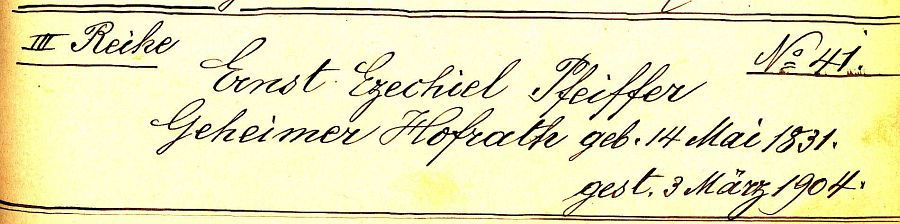 III Reihe
No 41.
Ernst Ezechiel Pfeiffer
Geheimer Hofrath geb. 14 Mai 1831.
gest. 3 März 1904.